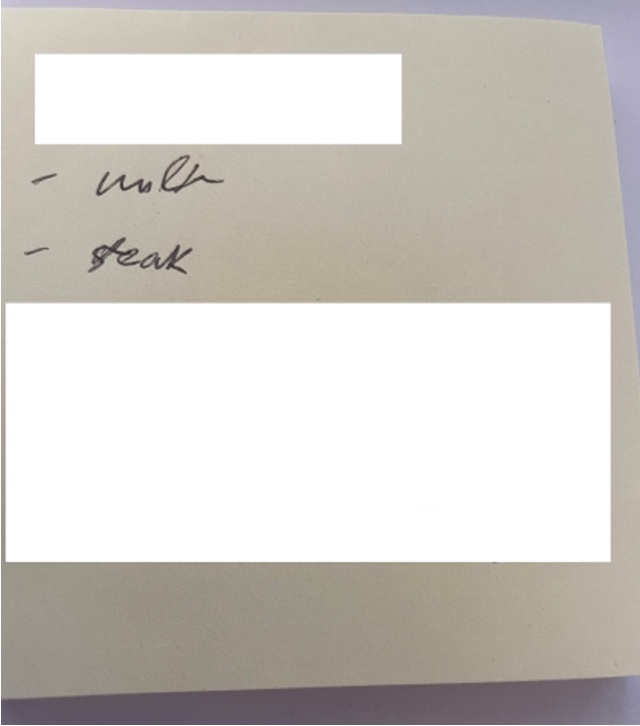 - milk
- steak